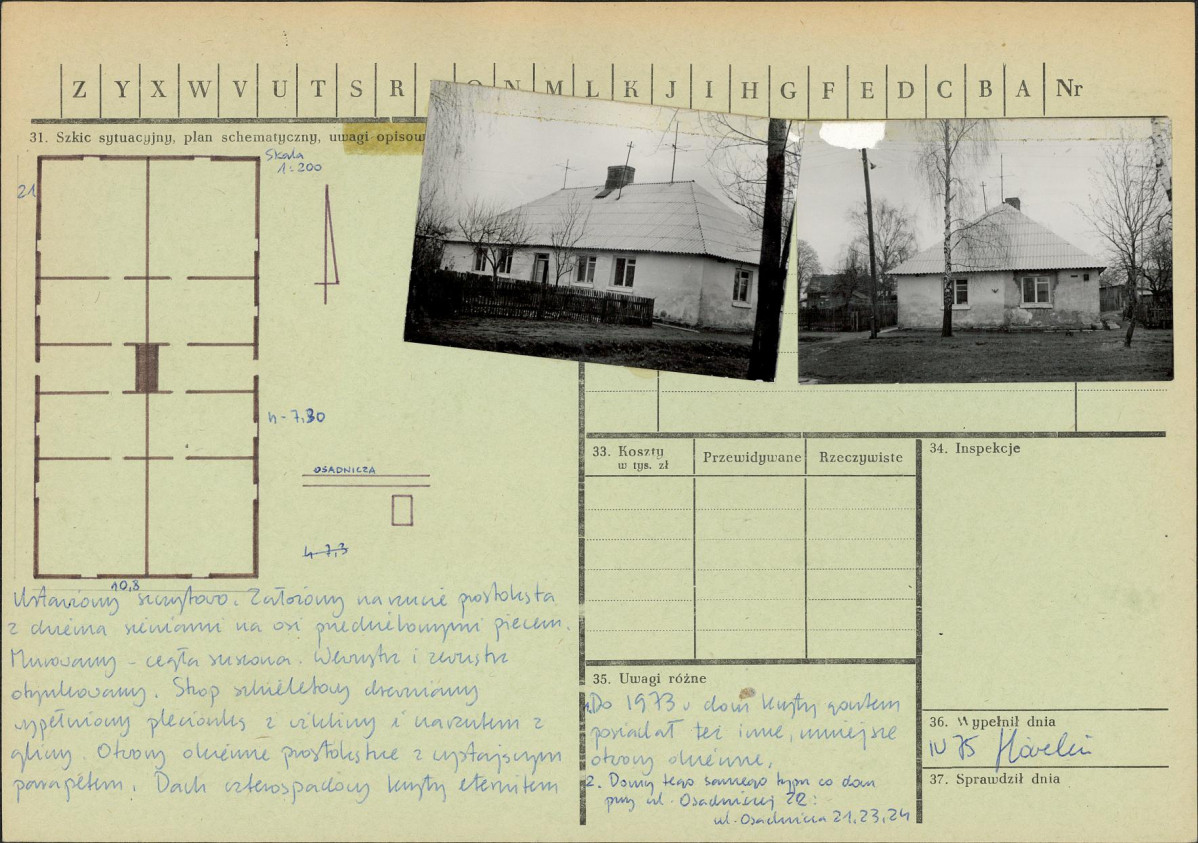 Z Y X W V U T S R O N M L K J I H G F E D C B A Nr
31. Szkic sytuacyjny, plan schematyczny, uwagi opisow
Skala
1:200
21
h - 7,30
OSADNICZA
h 7,3
10,8
Ustawiony szczytowo. Założony na rzucie prostokąta
z dwiema sieniami na osi przedzielonymi piecem.
Murowany - cegła suszona. Wewnątrz i zewnątrz
otynkowany. Strop szkieletowy drewniany
wypełniony plecionką z wikliny i narzutem z
gliny. Otwory okienne prostokątne z wystającym
parapetem. Dach czterospadowy kryty eternitem
33. Koszty
w tys. zł
Przewidywane
Rzeczywiste
34. Inspekcje
35. Uwagi różne
1. Do 1973 r dom kryty gontem
posiadał też inne, mniejsze
otwory okienne.
2. Domy tego samego typu co dom
przy ul. Osadniczej 22:
ul. Osadnicza 21,23,24
36. Wypełnił dnia
IV 75
37. Sprawdził dnia